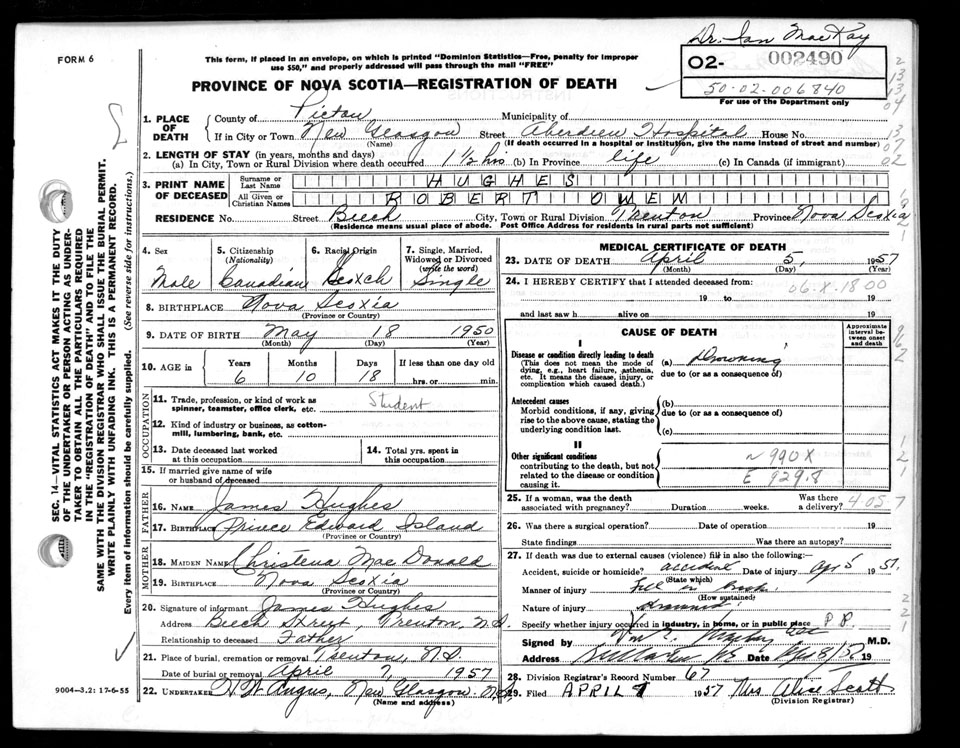 Dr. Ian MacKay
FORM 6
This form, if placed in an envelope, on which is printed "Dominion Statistics—Free, penalty for improper
use $50," and properly addressed will pass through the mail "FREE"
O2- 002490
50-02-006840
For use of the Department only
PROVINCE OF NOVA SCOTIA—REGISTRATION OF DEATH
1. PLACE OF DEATH
County of Pictou Municipality of
If in City or Town New Glasgow Street Aberdeen Hospital House No.
(Name) (If death occurred in a hospital or institution, give the name instead of street and number)
2. LENGTH OF STAY (in years, months and days)
(a) In City, Town or Rural Division where death occurred 1 1/2 hrs (b) In Province life (c) In Canada (if immigrant)
3. PRINT NAME OF DECEASED
Surname or Last Name HUGHES
All Given or Christian Names ROBERT OWEN
RESIDENCE No. Street Beech City, Town or Rural Division Trenton Province Nova Scotia
(Residence means usual place of abode. Post Office Address for residents in rural parts not sufficient)
4. Sex Male
5. Citizenship (Nationality) Canadian
6. Racial Origin Scotch
7. Single, Married, Widowed or Divorced (write the word) Single
8. BIRTHPLACE Nova Scotia
(Province or Country)
9. DATE OF BIRTH May 18 1950
(Month) (Day) (Year)
10. AGE in Years 6 Months 10 Days 18 If less than one day old hrs. or min.
OCCUPATION
11. Trade, profession, or kind of work as spinner, teamster, office clerk, etc. Student
12. Kind of industry or business, as cotton-mill, lumbering, bank, etc.
13. Date deceased last worked at this occupation
14. Total yrs. spent in this occupation
15. If married give name of wife or husband of deceased
FATHER
16. NAME James Hughes
17. BIRTHPLACE Prince Edward Island
(Province or Country)
MOTHER
18. MAIDEN NAME Christena MacDonald
19. BIRTHPLACE Nova Scotia
(Province or Country)
20. Signature of informant James Hughes
Address Beech Street, Trenton, N.S.
Relationship to deceased Father
21. Place of burial, cremation or removal Trenton, N.S.
Date of burial or removal April 7, 1957
22. UNDERTAKER H W Angus, New Glasgow N.S.
(Name and address)
MEDICAL CERTIFICATE OF DEATH
23. DATE OF DEATH April 5, 1957
(Month) (Day) (Year)
24. I HEREBY CERTIFY that I attended deceased from:
06-X-1800
19 to 19
and last saw h alive on 19
CAUSE OF DEATH
Approximate interval between onset and death
I
Disease or condition directly leading to death
(This does not mean the mode of dying, e.g., heart failure, asthenia, etc. It means the disease, injury, or complication which caused death.)
(a) Drowning
due to (or as a consequence of)
Antecedent causes
Morbid conditions, if any, giving rise to the above cause, stating the underlying condition last.
(b)
due to (or as a consequence of)
(c)
II
Other significant conditions
contributing to the death, but not related to the disease or condition causing it.
N 990X
E 929.8
25. If a woman, was the death associated with pregnancy? Duration weeks. Was there a delivery?
4057
26. Was there a surgical operation? Date of operation 19
State findings Was there an autopsy?
27. If death was due to external causes (violence) fill in also the following:
Accident, suicide or homicide? accident Date of injury Apr 5 1957
(State which)
Manner of injury Fell in brook
(How sustained)
Nature of injury drowned
Specify whether injury occurred in industry, in home, or in public place P.P.
Signed by M.D.
Address Date 19
28. Division Registrar's Record Number 67
29. Filed APRIL 1957 Mrs Alice Scott
(Division Registrar)
SEC. 14—VITAL STATISTICS ACT MAKES IT THE DUTY
OF THE UNDERTAKER OR PERSON ACTING AS UNDER-
TAKER TO OBTAIN ALL THE PARTICULARS REQUIRED
IN THE "REGISTRATION OF DEATH" AND TO FILE THE
SAME WITH THE DIVISION REGISTRAR WHO SHALL ISSUE THE BURIAL PERMIT.
WRITE PLAINLY WITH UNFADING INK. THIS IS A PERMANENT RECORD.
Every item of information should be carefully supplied. (See reverse side for instructions.)
9004-3.2: 17-6-55